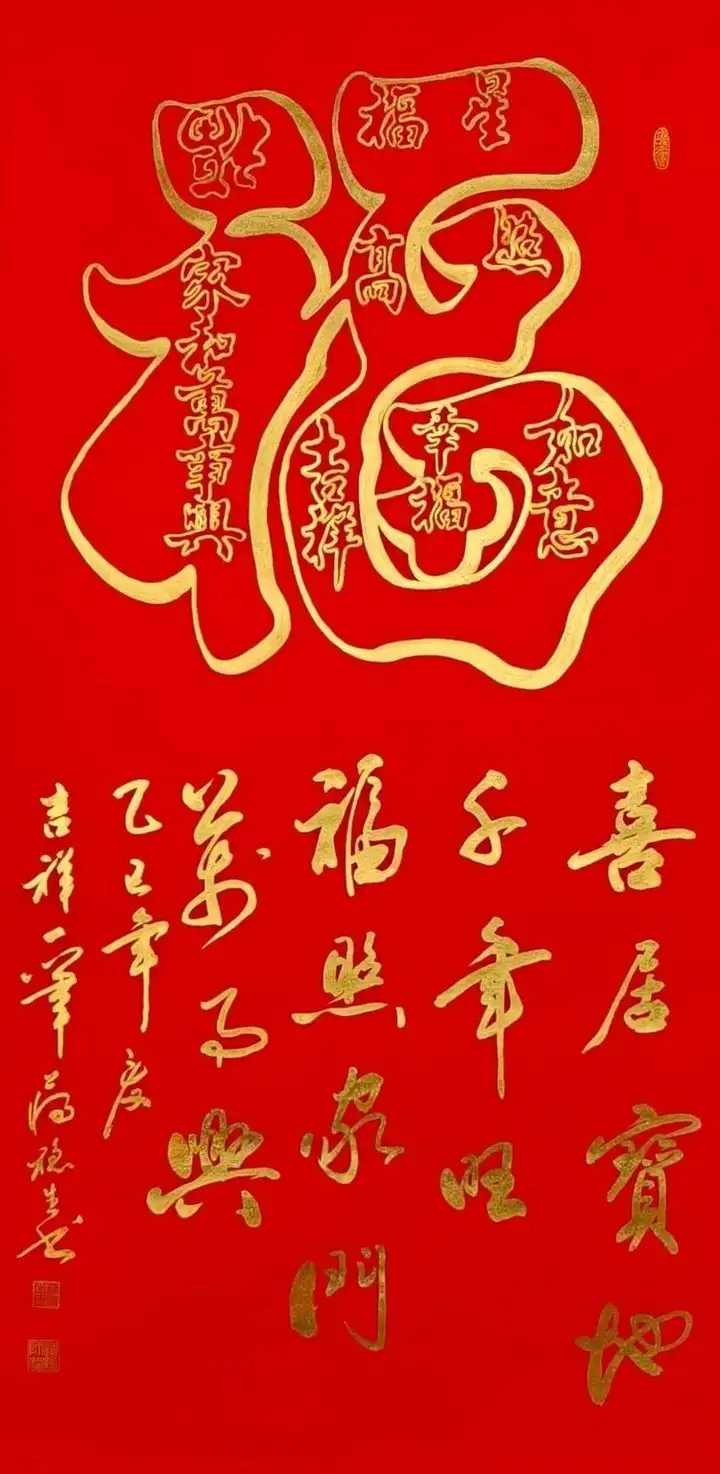 福
福星
高照
家和萬事興
吉祥
幸福
如意
喜居寶地
千年旺
福照家門
萬事興
乙巳年夏
吉祥一筆